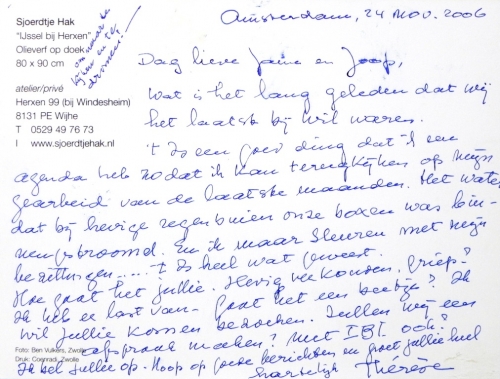 Sjoerdtje Hak
"IJssel bij Herxen"
Olieverf op doek
80 x 90 cm
om naar te
kijken en te
dromen!
atelier/privé
Herxen 99 (bij Windesheim)
8131 PE Wijhe
T 0529 49 76 73
I www.sjoerdtjehak.nl
Amsterdam, 24 nov. 2006
Dag lieve en Joop,
Wat is het lang geleden dat wij
het laatst bij wil waren.
't Is een goed ding dat ik een
agenda heb zodat ik kan terugkijken op mijn
gearbeid van de laatste maanden. Het water
dat bij hevige regenbuien onze boxen was bin-
nengestroomd. En ik maar sleuren met mijn
bezittingen..... 't Is heel wat geweest.
Hoe gaat het jullie. Hevig verkouden, griep?
Ik heb er last van. Gaat het een beetje? Ik
wil jullie komen bezoeken. Zullen wij een
afspraak maken? Met IBI ook?
Ik bel jullie op. Hoop op goede berichten en groet jullie heel
hartelijk Thérèse
Foto: Ben Vulkers, Zwolle
Druk: Coenradi, Zwolle